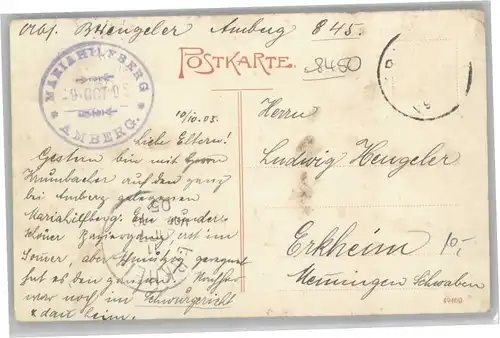 Abs. B. Hengeler Amberg 845.
MARIAHILFBERG
AMBERG.
POSTKARTE.
8450
10/10.05.
Liebe Eltern!
Gestern bin mit Herrn
Krumbacher auf den ganz
bei Amberg gelegenen
Mariahilfberg. Ein wunder-
schöner Spaziergang ist im
Somer, aber geregnet
hat es den ganzen Nachher
war noch im Schwurgericht
& dan heim.
Herrn
Ludwig Hengeler
Erkheim
10,-
Memingen Schwaben